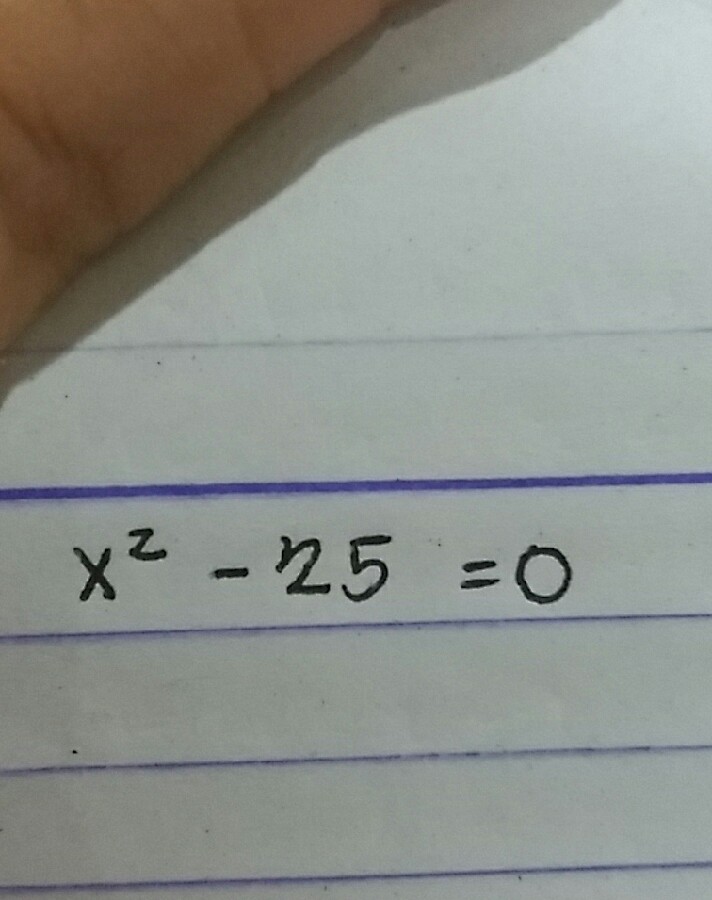 x² - 25 = 0